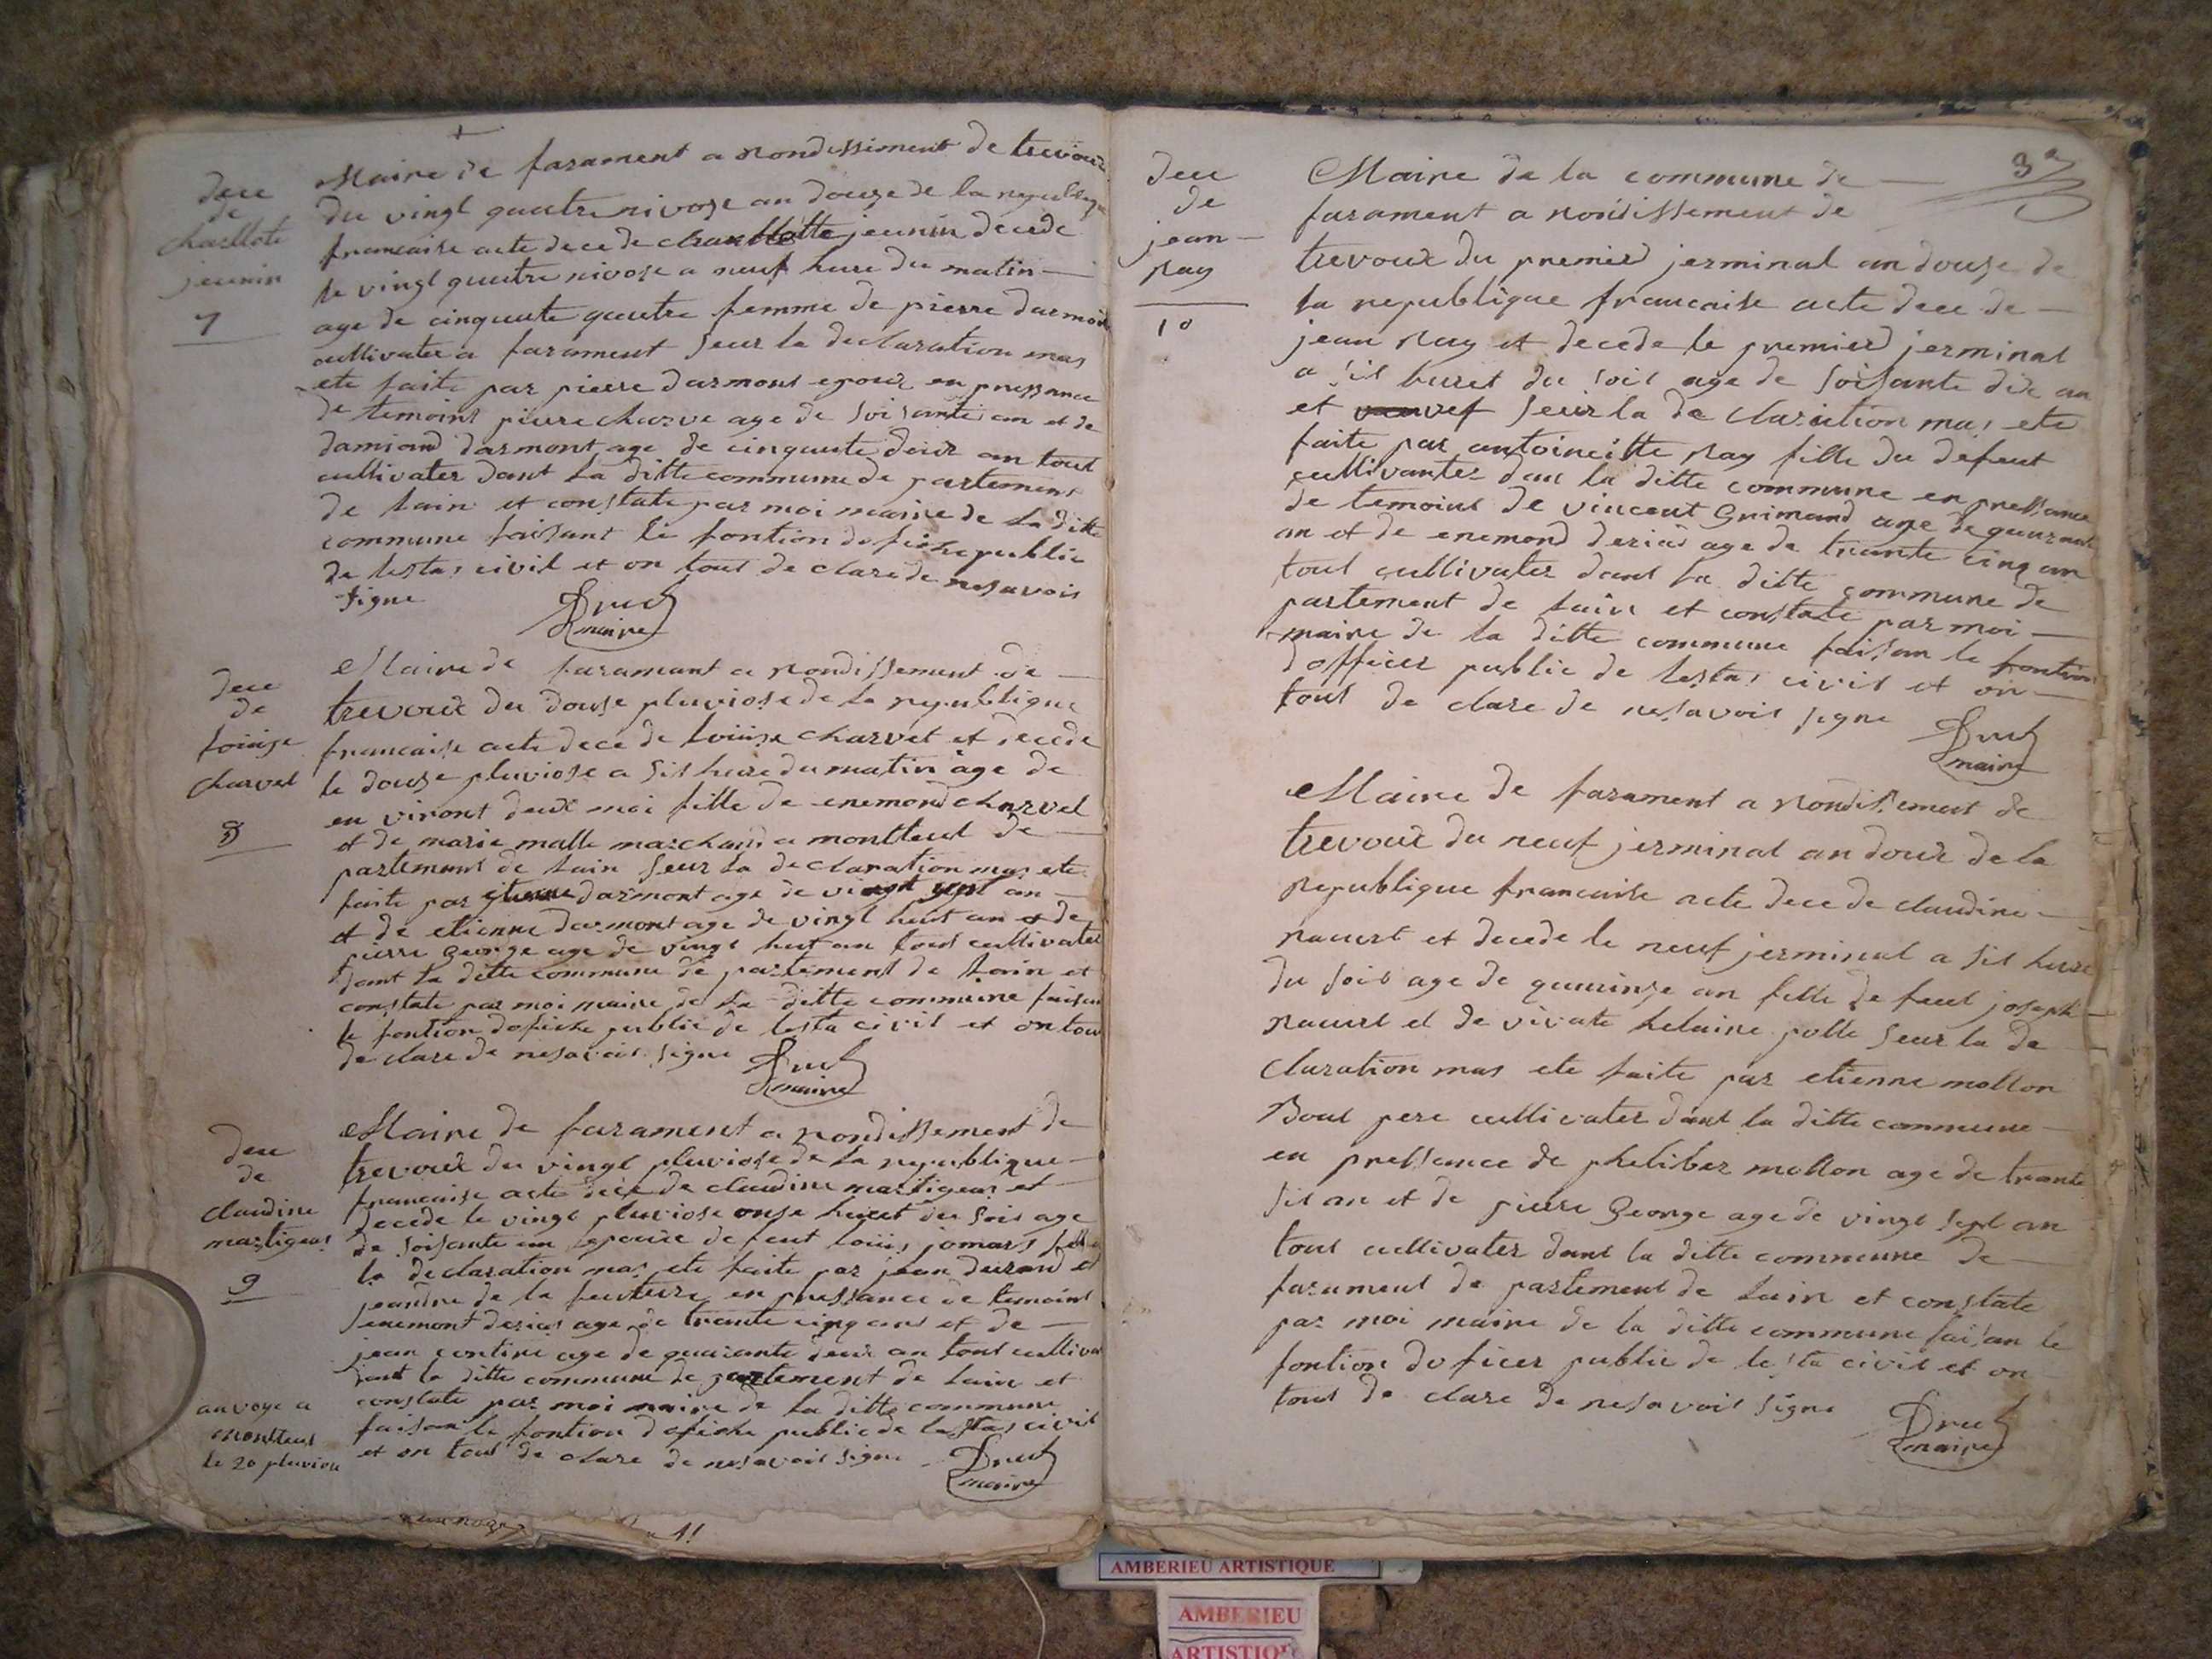 dece
de
charllote
jeunin
7
Maire de farament a rondissiment de trevoux
du vingt quatre nivoze an douze de la republique
francaise acte dece de charllotte jeunin decede
le vingt quatre nivose a neuf hure du matin
age de cinquante quatre femme de pierre darmon
cullivater a farament seur la declaration mas
ete faite par pierre darmont epoux en pressance
de temoins pierre charve age de soisante an et de
damiand darmont age de cinquante deux an tout
cullivater dant la ditte commune de partement
de lain et constate par moi maire de la ditte
commune faisant le fontion dofishe public
de lestas civil et on tout de clare de nesavoir
signe
Druet
maire
dece
de
loiuise
charvet
8
Maire de faramant a rondissement de
trevoux du douse pluviose de la republique
francaise acte dece de loiiise charvet et decede
le douse pluviose a sis hure du matin age de
en viront deux moi fille de enemond charvel
et de marie malle marchand a montteul de
partement de lain seur la declaration mas ete
faite par darmont age de vingt sept an
et de etienne darmont age de vingt huit an et de
pierre george age de vingt huit an tous cullivater
dant la ditte commune de partement de lain et
constate par moi maire de la ditte commune faisan
le fontion dofishe public de lesta civil et on tou
de clare de nesavoir signe
Druet
maire
dece
de
claudine
martigeas
9
Maire de farament a rondissement de
trevoux du vingt pluviose de la republique
francaise acte dece de claudine martigeas et
decede le vingt pluviose onse heuret du soir age
de soisante an epouse de feut loiiis jomars
la declaration mas ete faite par jean durand et
jeandre de la en pressance de temoins
enemont derias age de trante cinq ans et de
jean contine age de quarante deux an tout culliva
dant la ditte commune de partement de lain et
constate par moi maire de la ditte commune
faisan le fontion dofishe public de lestas civil
et on tout de clare de nesavoir signe
Druet
maire
anvoye a
montteul
le 20 pluvios
11
dece
de
jean
ray
10
37
Maire de la commune de
farament a rondissement de
trevoux du premier jerminal an douse de
la republique francaise acte dece de
jean ray et decede le premier jerminal
a sis huret du soir age de soisante dix an
et veuvef seur la de claration mas ete
faite par antoineitte ray fille du defeut
cullivantes dans la ditte commune en pressance
de temoins de vincent Grimand age de quarante
an et de enemond derias age de trante cinq an
tout cullivater dant la ditte commune de
partement de lain et constate par moi
maire de la ditte commune faisan le fontion
dofficier public de lestas civil et on
tout de clare de nesavoir signe
Druet
maire
Maire de farament a rondissement de
trevoux du neuf jerminal an doux de la
republique francaise acte dece de claudine
racurt et decede le neuf jerminal a sis hure
du soir age de quuinze an fille de feut joseph
racurt et de vivante helaine polle seur la de
claration mas ete faite par etienne mollon
Bout pere cullivater dant la ditte commune
en pressance de pheliber mollon age de trante
sis an et de pierre George age de vingt sept an
tout cullivater dant la ditte commune de
farament de partement de lain et constate
par moi maire de la ditte commune faisan le
fontion doficer public de lesta civil et on
tout de clare de nesavoir signe
Druet
maire
AMBERIEU ARTISTIQUE
AMBERIEU
ARTISTIQUE